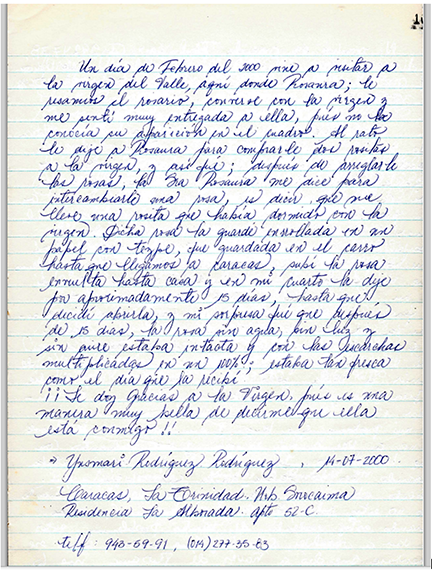 Un día de Febrero del 2000 vine a visitar a
la virgen del Valle, aquí donde Rosaura; le
resamos el rosario, converse con la virgen y
me sentí muy entregada a ella, pues no la
conocía su aparición en el cuadro. Al rato
le dije a Rosaura para comprarle dos rositas
a la virgen, y así fué; después de arreglarle
las rosas, la Sra Rosaura me dice para
intercambiarle una rosa, es decir, que me
lleve una rosita que había dormido con la
virgen. Dicha rosa la guardé enrollada en un
papel con teipe, fue guardada en el carro
hasta que llegamos a caracas, subí la rosa
envuelta hasta casa y en mi cuarto la dije
por aproximadamente 15 días, hasta que
decidí abrirla, y mi sorpresa fué que después
de 15 días, la rosa sin agua, sin luz y
sin aire estaba intacta y con las escarchas
multiplicadas en un 100%; estaba tan fresca
como el día que la recibí.
¡¡ Le doy Gracias a la Virgen, pués es una
manera muy bella de decirme que ella
está conmigo !!
→ Yxomari Rodríguez Rodríguez, 14-07-2000.
Caracas, La Trinidad. Urb. Sorocaima
Residencia La Alborada. apto 52-C.
telf: 943-59-91, (014) 277-35-83